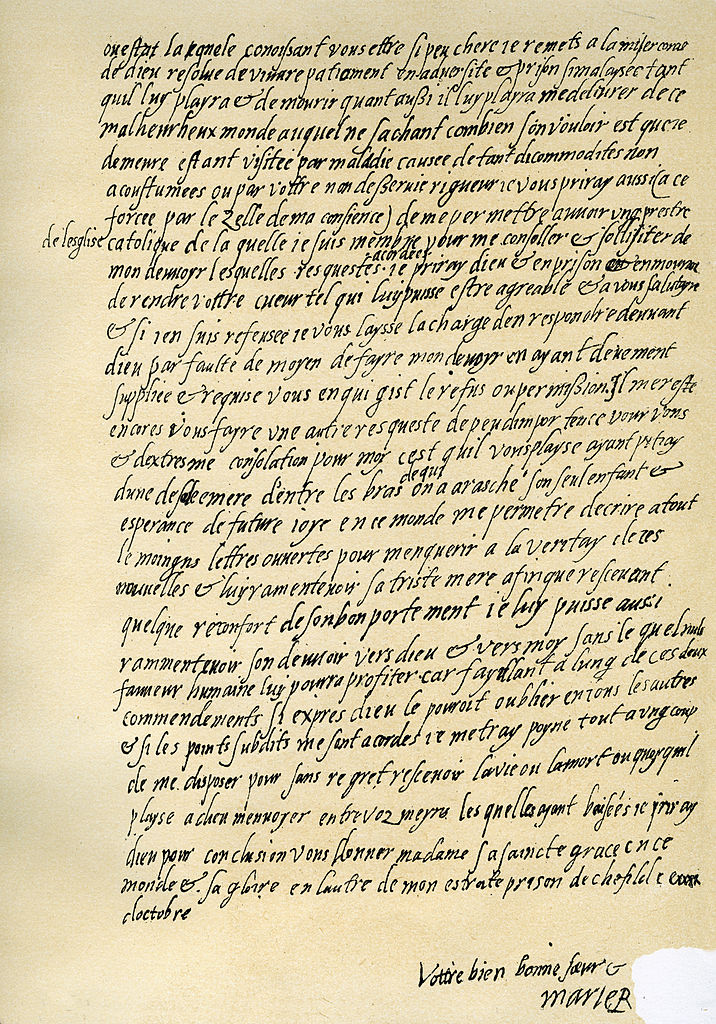 ou estat laquele conoissant vous estre si peu chere ie remets a la misericorde
de dieu resolue de vivre patiament en adversite & prison si malaysee tant
quil luy playra & de mourir quant aussi il luy playra me delivrer de ce
malheurheux monde auquel ne sachant combien son vouloir est que ie
demeure estant visitee par maladie causee de tant dicommodites non
acoustumees ou par vottre non desservie rigueur ie vous priray aussi (a ce
forcee par le Zelle de ma consience) de me permettre auvoir ung prestre
de lesglise catolique de la quelle ie suis membre pour me consoller & sollisiter de
mon devuoyr lesquelles resquestes acordees ie priray dieu & en prison & en mourant
de rendre vottre cueur tel qui luy puisse estre agreable & a vous salutayre
& si ien suis refusee ie vous laysse la charge den respondre devuant
dieu par faulte de moyen de fayre mon devuoyr en ayant devement
suppliee & requise vous en qui gist le refus ou permission. Il me reste
encores vous fayre une autre resqueste de peu dimportence pour vous
& dextresme consolation pour moy cest quil vous playse ayant pitay
dune desolee mere dentre les bras de qui on a arasche son seul enfant &
esperance de future ioye en ce monde me permetre decrire a tout
le moingns lettres ouvertes pour menquerir a la veritay de ces
nouvelles & luy ramentevoir sa triste mere afin que rescevant
quelque reconfort de son bon portement ie luy puisse aussi
rammentevoir son devuoir vers dieu & vers moy sans le quel nule
faueur humaine luy pourra profiter car fayllant a lung de ces deux
commendements si expres dieu le pouroit oublier en tous les autres
& si les points subdits me sont acordes ie metray poyne tout a ung coup
de me disposer pour sans regret rescevoir la vie ou la mort ou quoy quil
playse a dieu menvoyer entre voz meyns les quelles ayant baisées ie priray
dieu pour conclusion vous donner madame sa saincte grace en ce
monde & sa gloire en lautre de mon estroite prison de chefild le
doctobre
Vottre bien bonne sœur &
MARIE R